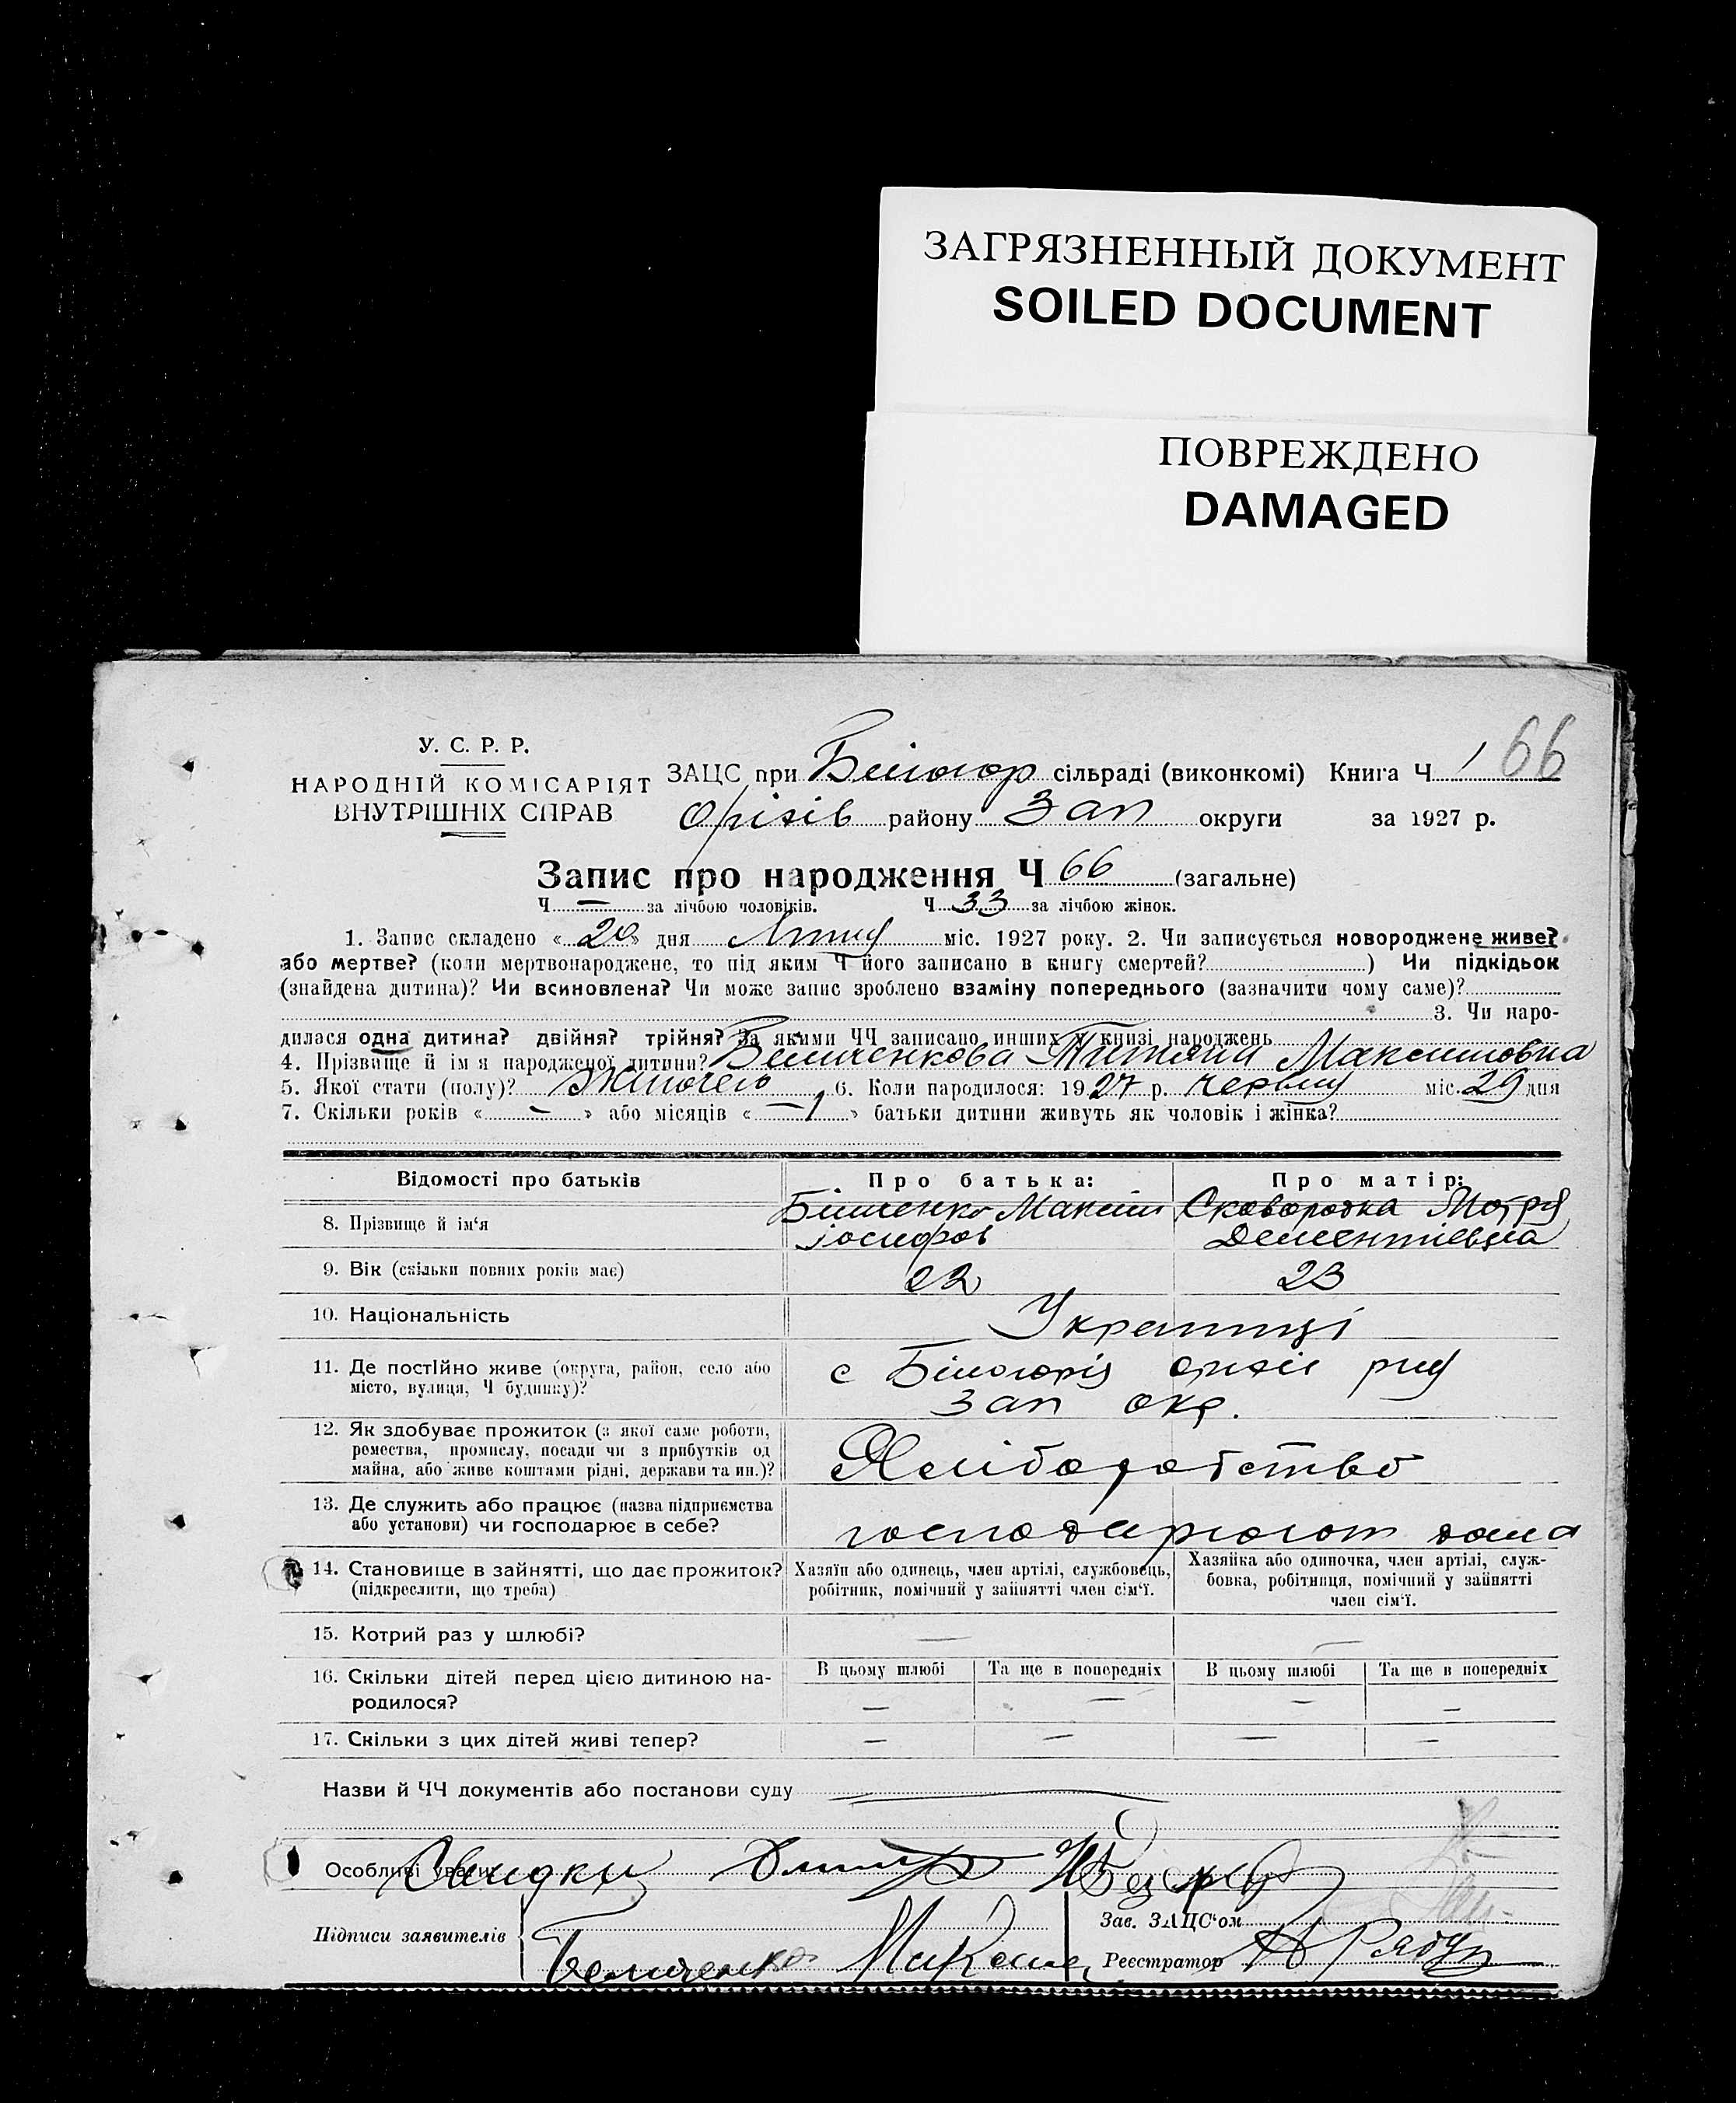 ЗАГРЯЗНЕННЫЙ ДОКУМЕНТ
SOILED DOCUMENT
ПОВРЕЖДЕНО
DAMAGED
У. С. Р. Р.
НАРОДНІЙ КОМІСАРІЯТ
ВНУТРІШНІХ СПРАВ
ЗАЦС при Білогор сільраді (виконкомі) Книга Ч 1 66
Оріхів району Зап округи за 1927 р.
Запис про народження Ч 66 (загальне)
Ч — за лічбою чоловіків. Ч 33 за лічбою жінок.
1. Запис складено « 20 » дня міс. 1927 року. 2. Чи записується новороджене живе?
або мертве? (коли мертвонароджене, то під яким Ч його записано в книгу смертей? ) Чи підкідьок
(знайдена дитина)? Чи всиновлена? Чи може запис зроблено взаміну попереднього (зазначити чому саме)?
3. Чи наро-
дилася одна дитина? двійня? трійня? За якими ЧЧ записано инших у книзі народжень
4. Прізвище й ім'я народженої дитини? Максимовна
5. Якої статі (полу)? Жіночого 6. Коли народилося: 1927 р. червня міс. 29 дня
7. Скільки років « — » або місяців « — » батьки дитини живуть як чоловік і жінка?
Відомості про батьків
Про батька:
Про матір:
8. Прізвище й ім'я
Максим
Іосифов
Сковородка Мотря
Дементіевна
9. Вік (скільки повних років має)
22
23
10. Національність
Українці
11. Де постійно живе (округа, район, село або
місто, вулиця, Ч будинку)?
с Білогорія
Зап окр.
12. Як здобуває прожиток (з якої саме роботи,
ремества, промислу, посади чи з прибутків од
майна, або живе коштами рідні, держави та ин.)?
Хліборобство
13. Де служить або працює (назва підприємства
або установи) чи господарює в себе?
господарюют дома
14. Становище в зайнятті, що дає прожиток?
(підкреслити, що треба)
Хазяїн або одинець, член артілі, службовець,
робітник, помічний у зайнятті член сім'ї.
Хазяйка або одиночка, член артілі, служ-
бовка, робітниця, помічний у зайнятті
член сім'ї.
15. Котрий раз у шлюбі?
—
—
16. Скільки дітей перед цією дитиною на-
родилося?
В цьому шлюбі
Та ще в попередніх
В цьому шлюбі
Та ще в попередніх
— — — —
17. Скільки з цих дітей живі тепер?
— — — —
Назви й ЧЧ документів або постанови суду
Особливі уваги Свидки
Підписи заявителів
Зав. ЗАЦС'ом
Реєстратор